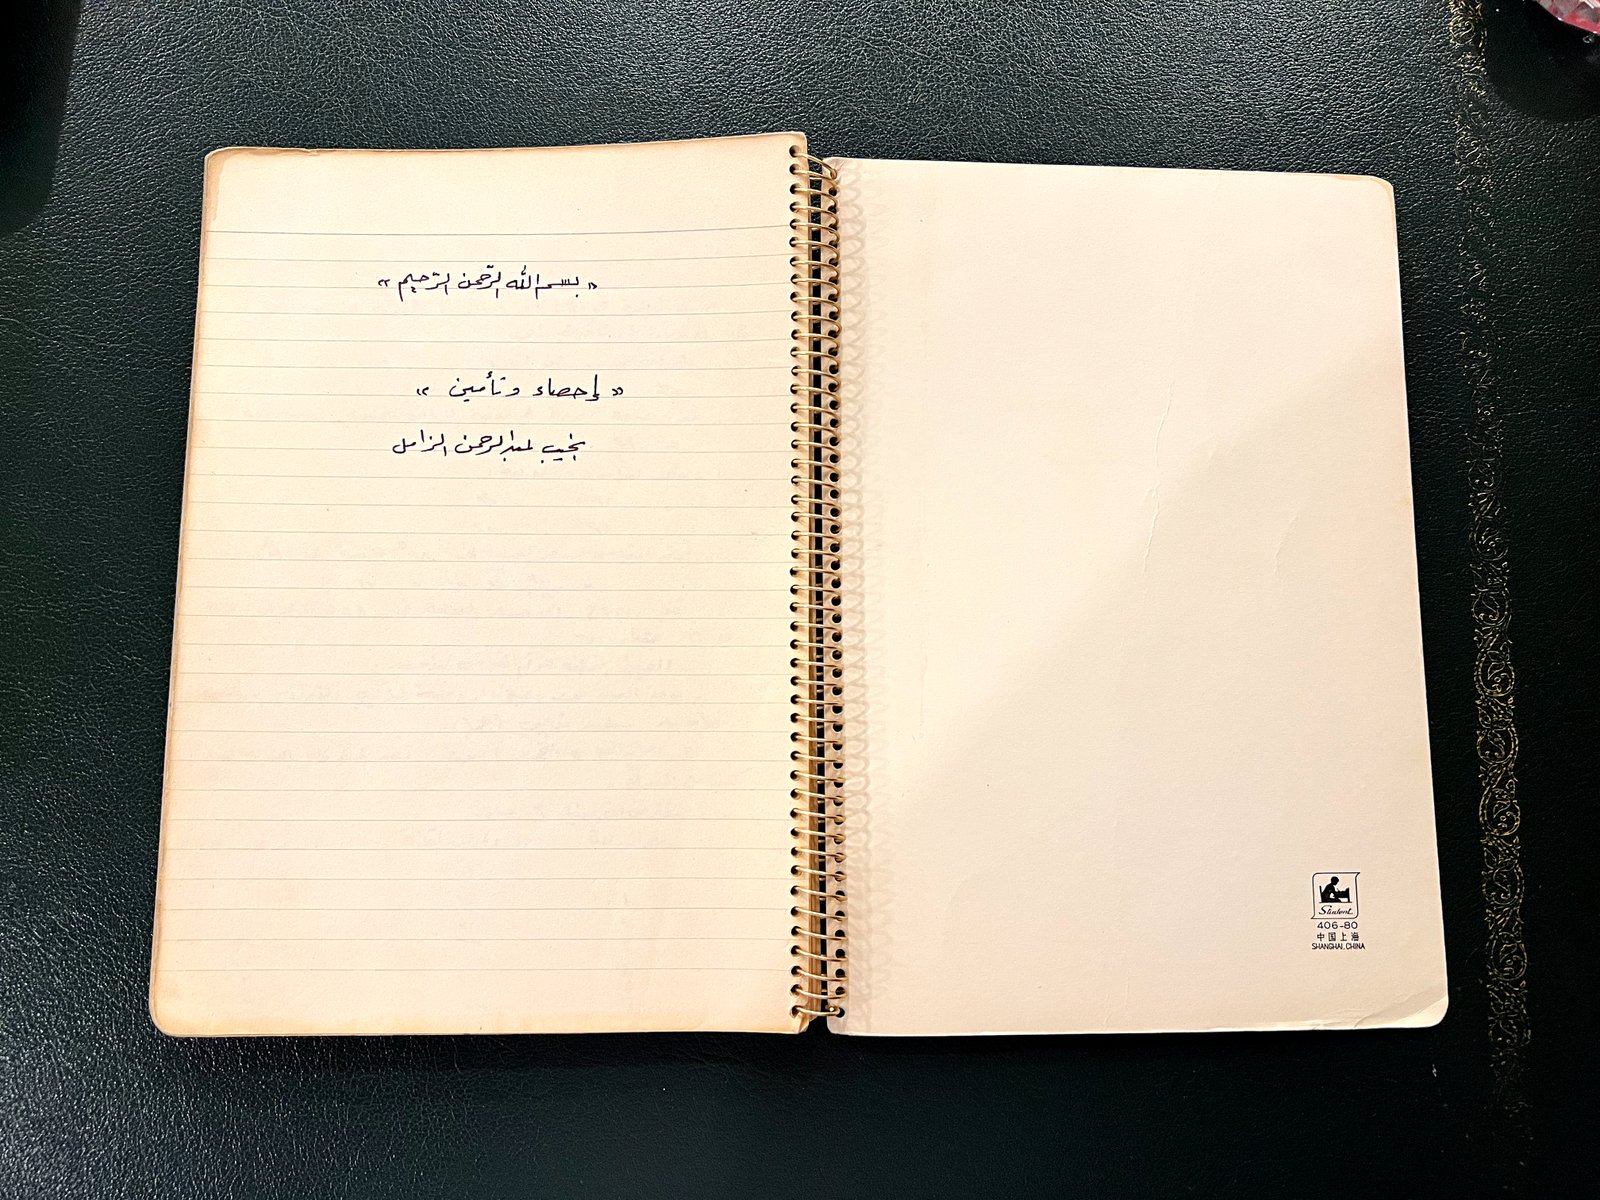 « بسم الله الرّحمن الرّحيم »
« إحصاء وتأمين »
نجيب عبدالرحمن الزامل
Student
406-80
中国上海
SHANGHAI, CHINA